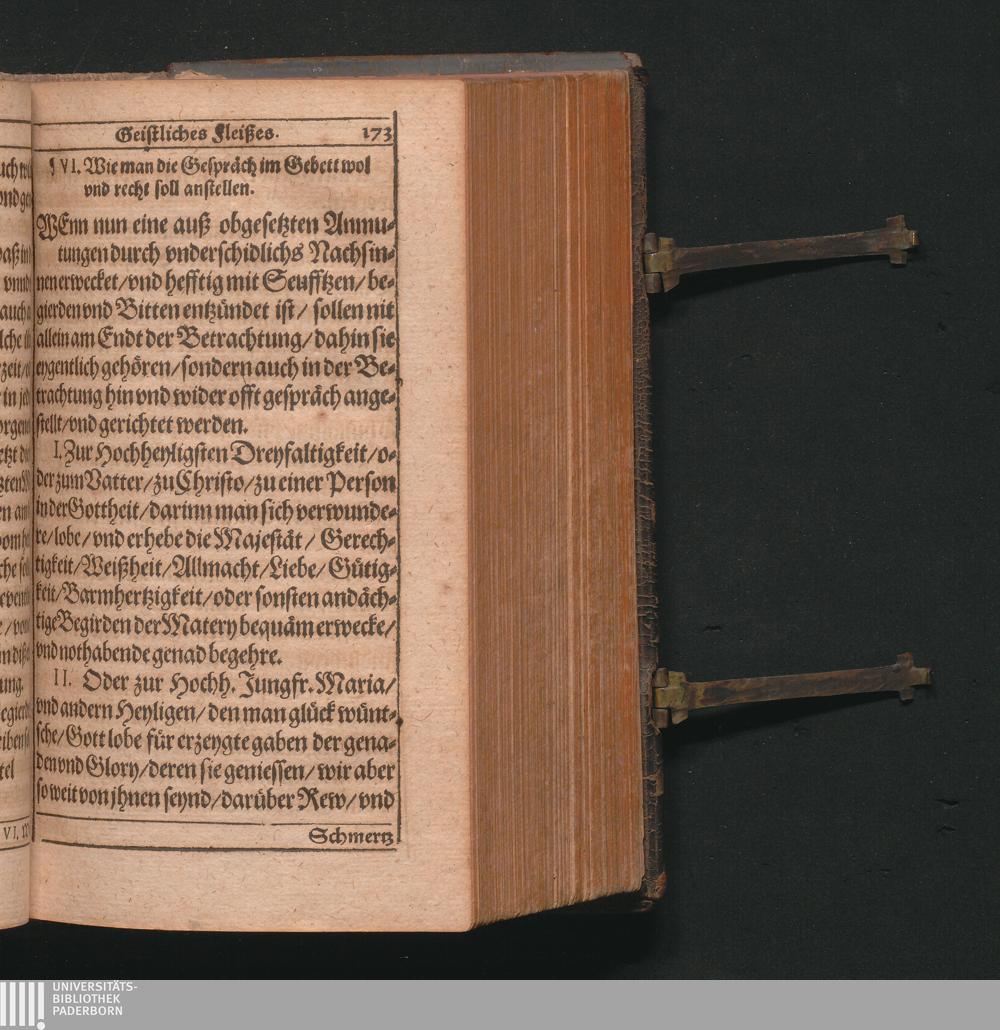 Geistliches Fleißes. 173
§ VI. Wie man die Gespräch im Gebett wol
vnd recht soll anstellen.
WEnn nun eine auß obgesetzten Anmu-
tungen durch vnderschidlichs Nachsin-
nen erwecket/vnd hefftig mit Seufftzen/be-
gierden vnd Bitten entzündet ist/ sollen nit
allein am Endt der Betrachtung/dahin sie
eygentlich gehören/sondern auch in der Be-
trachtung hin vnd wider offt gespräch ange-
stellt/vnd gerichtet werden.
I. Zur Hochheyligsten Dreyfaltigkeit/o-
der zum Vatter/zu Christo/zu einer Person
in der Gottheit/darinn man sich verwunde-
re/lobe/vnd erhebe die Majestät/ Gerech-
tigkeit/Weißheit/Allmacht/Liebe/Gütig-
keit/Barmhertzigkeit/oder sonsten andäch-
tige Begirden der Matery bequäm erwecke/
vnd nothabende genad begehre.
II. Oder zur Hochh. Jungfr. Maria/
vnd andern Heyligen/den man glück wünt-
sche/Gott lobe für erzeygte gaben der gena-
den vnd Glory/deren sie geniessen/wir aber
so weit von jhnen seynd/darüber Rew/vnd
Schmertz
UNIVERSITÄTS-
BIBLIOTHEK
PADERBORN